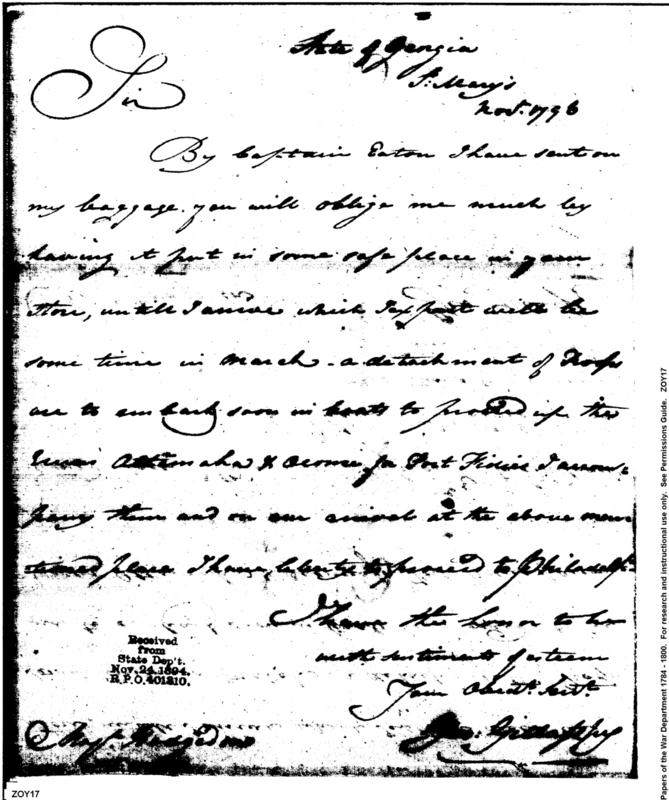 State of Georgia
St. Mary's
Novr. 1796
Sir
By Captain Eaton I have sent on
my baggage. you will oblige me much by
having it put in some safe place in your
Store, untill I arrive which I expect will be
some time in March - a detachment of Troops
are to embark soon in boats to proceed up the
River Attamaha & Oconee for Fort Fidius I accom-
pany them and on our arrival at the above men-
tioned place I have liberty to proceed to Philadelp
I have the honor to be
with sentiments of esteem
Your Obedt. Servt.
Geo: Gillaspy
Majr.
Received
from
State Dep't.
Nov. 24, 1894.
R.P.O. 401810.
ZOY17
Papers of the War Department 1784 - 1800. For research and instructional use only. See Permissions Guide. ZOY17